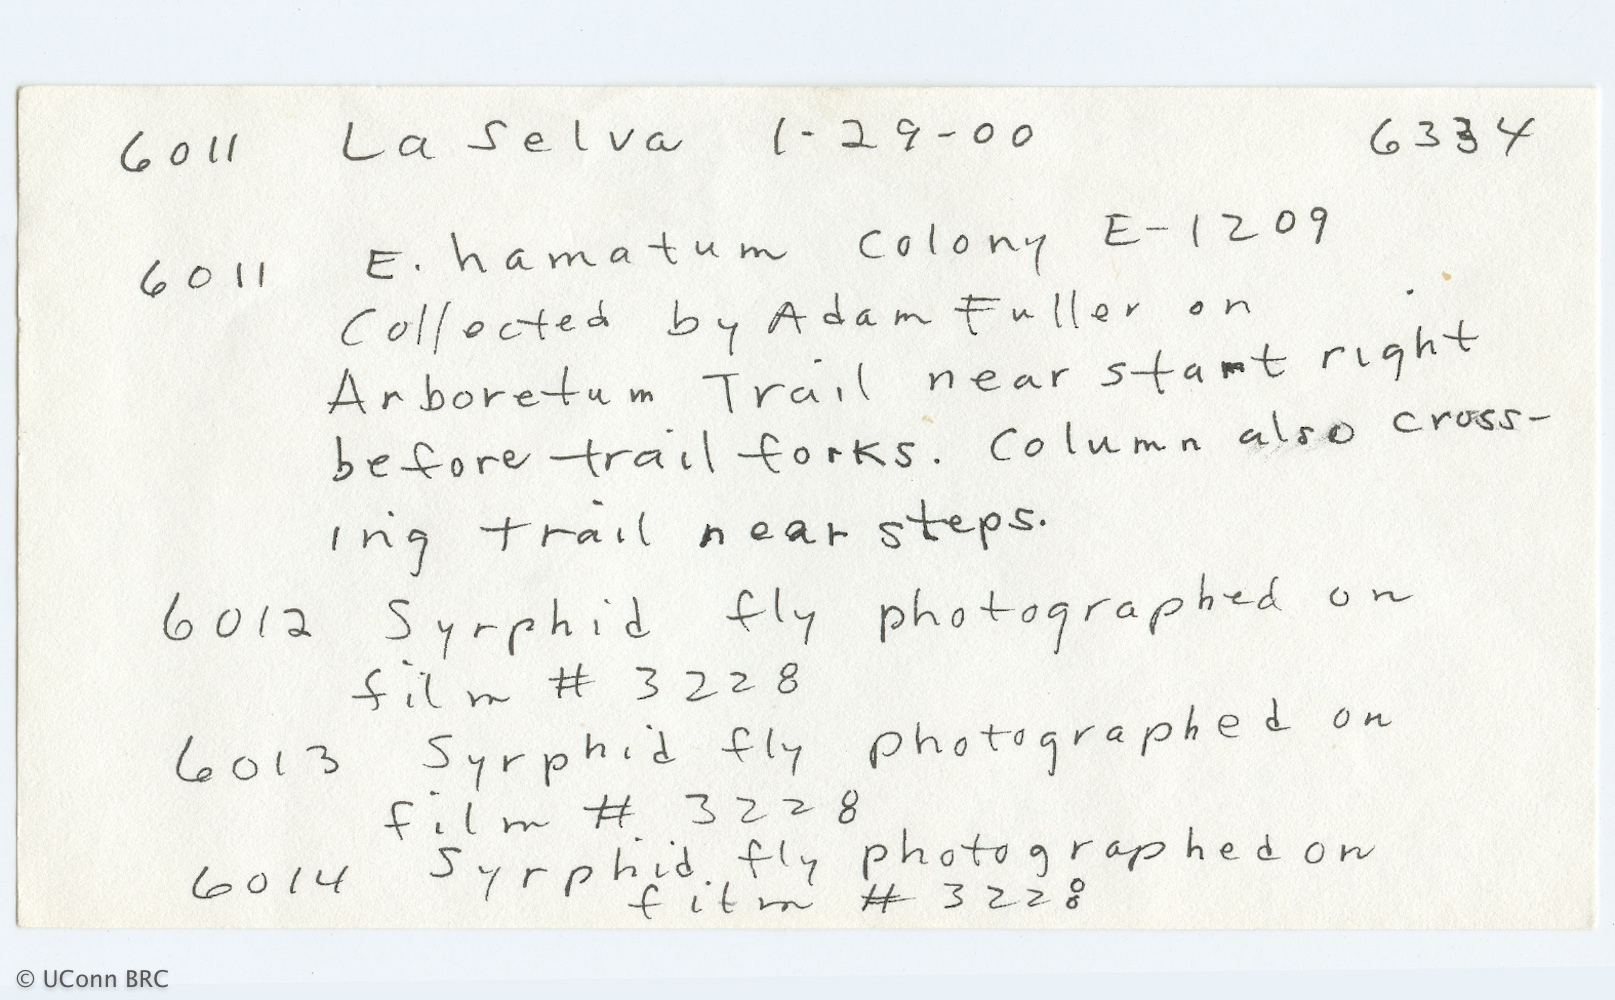 6011 La Selva 1-29-00 6334
6011 E. hamatum Colony E-1209
Collected by Adam Fuller on
Arboretum Trail near start right
before trail forks. Column also cross-
ing trail near steps.
6012 Syrphid fly photographed on
film # 3228
6013 Syrphid fly photographed on
film # 3228
6014 Syrphid fly photographed on
film # 3228
© UConn BRC